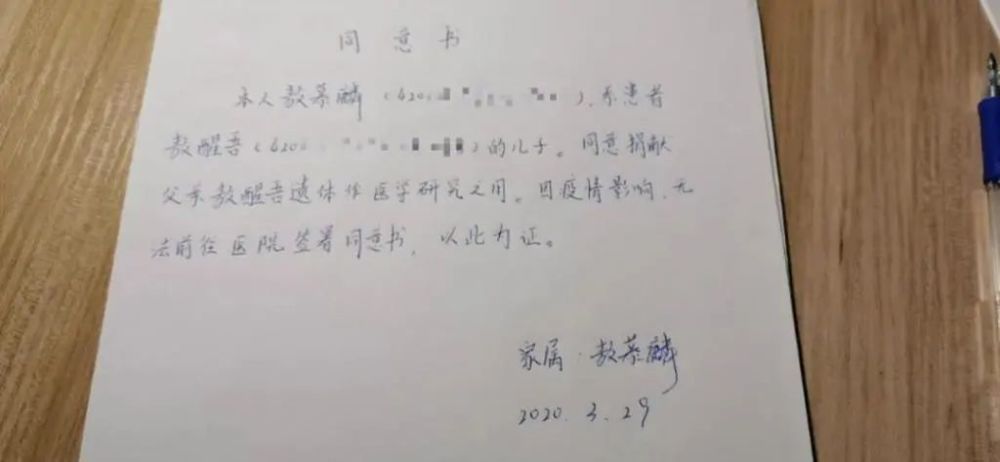 同意书
本人敖慕麟(420),系患者
敖醒吾(420)的儿子。同意捐献
父亲敖醒吾遗体作医学研究之用。因疫情影响,无
法前往医院签署同意书,以此为证。
家属:敖慕麟
2020.3.29